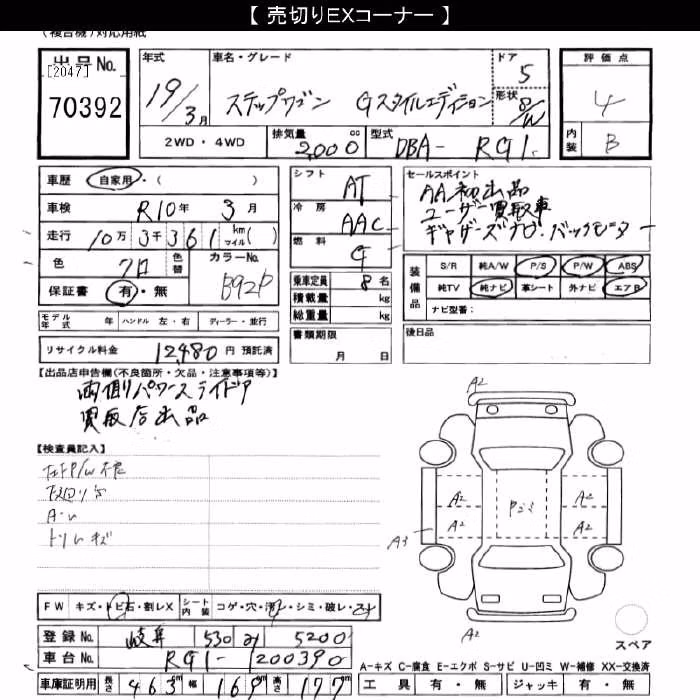 【 売切りEXコーナー 】
(複合機)対応用紙
出品No.
[2047]
70392
年式
19/3月
車名・グレード
ステップワゴン Gスタイルエディション
ドア
5
形状
S/W
評価点
4
内装
B
2WD・4WD
排気量
2,000 cc
型式
DBA- RG1-
車歴 自家用・( )
車検 R10年 3月
走行 10万3千361 km マイル( )
色 クロ 色替
カラーNo. B92P
保証書 有・無
シフト AT
冷房 AAC
燃料 G
乗車定員 8名
積載量 kg
総重量 kg
書類期限
月 日
セールスポイント
AA初出品
ユーザー買取車
ギャザーズナビ・バックモニター
装備品
S/R 純A/W P/S P/W ABS
純TV 純ナビ 革シート 外ナビ エアB
ナビ型番:
後日品
モデル年式 年 ハンドル 左・右 ディーラー・並行
リサイクル料金 12,480 円 預託済
【出品店申告欄(不良箇所・欠品・注意事項等)】
両側パワースライドドア
買取店出品
【検査員記入】
A-い
トリムキズ
A2
A2
A2
A2
A2
A3
A2
スペア
FW キズ・トビ石・割レX
シート内装 コゲ・穴・汚レ・シミ・破レ・スレ
登録No. 岐阜 530 5200
車台No. RG1- 1200390
車庫証明用 長さ 463 m 幅 169 m 高さ 177 m
A-キズ C-腐食 E-エクボ S-サビ U-凹ミ W-補修 XX-交換済
工具 有・無 ジャッキ 有・無